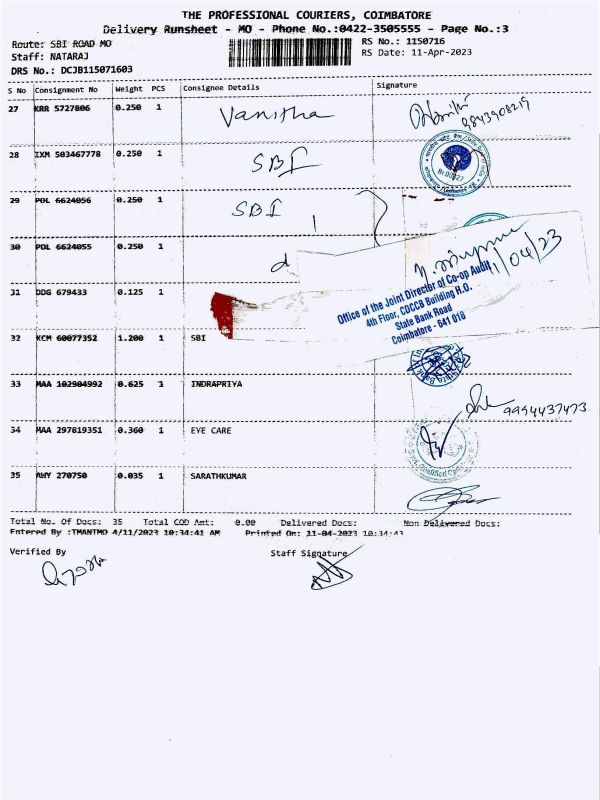 THE PROFESSIONAL COURIERS, COIMBATORE
Delivery Runsheet - MO - Phone No.:0422-3505555 - Page No.:3
Route: SBI ROAD MO
RS No.: 1150716
Staff: NATARAJ
RS Date: 11-Apr-2023
DRS No.: DCJB115071603
S No Consignment No Weight PCS Consignee Details Signature
27 KRR 5727806 0.250 1 Vanitha
9843908219
28 IXM 503467778 0.250 1 SBI
29 POL 6624056 0.250 1 SBI
30 POL 6624055 0.250 1
11/04/23
Office of the Joint Director of Co-op Audit
4th Floor, CDCCB Building R.O.
State Bank Road
Coimbatore - 641 018
31 DDG 679433 0.125 1
32 KCM 60077352 1.200 1 SBI
33 MAA 102904992 0.625 1 INDRAPRIYA
9994437473
34 MAA 297819351 0.360 1 EYE CARE
35 AWY 270750 0.035 1 SARATHKUMAR
Total No. Of Docs: 35 Total COD Amt: 0.00 Delivered Docs: Non Delivered Docs:
Entered By :TMANTMO 4/11/2023 10:34:41 AM Printed On: 11-04-2023 10:34:43
Verified By Staff Signature